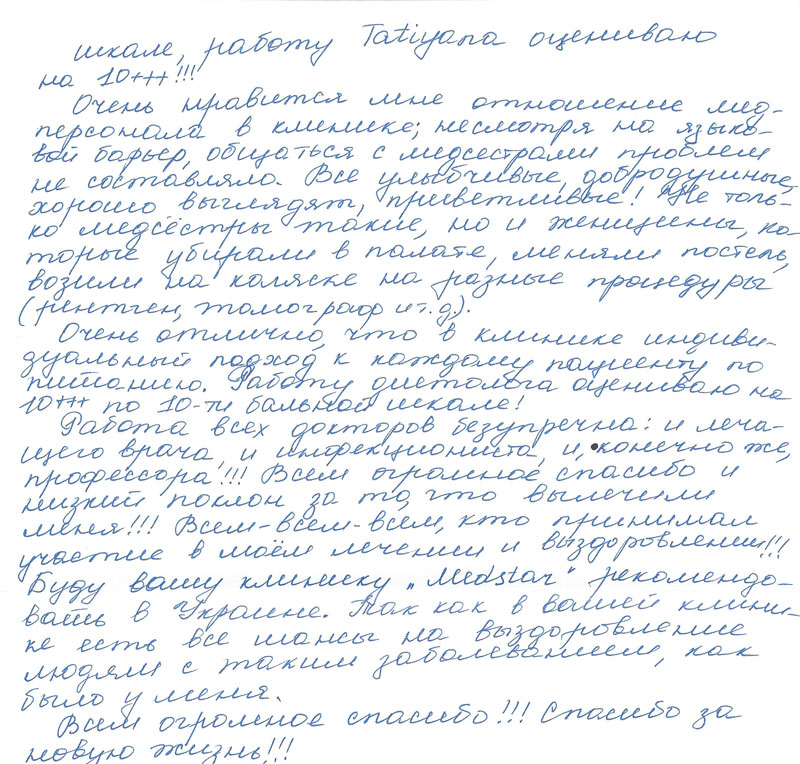 шкале, работу Tatiyana оцениваю
на 10+++!!!
Очень нравится мне отношение мед-
персонала в клинике; несмотря на языко-
вой барьер, общаться с медсестрами проблем
не составляло. Все улыбчивые, добродушные,
хорошо выглядят, приветливые! Не толь-
ко медсёстры такие, но и женщины, ко-
торые убирали в палате, меняли постель,
возили на коляске на разные процедуры
(рентген, томограф и т.д.).
Очень отлично, что в клинике индиви-
дуальный подход к каждому пациенту по
питанию. Работу диетолога оцениваю на
10+++ по 10-ти бальной шкале!
Работа всех докторов безупречна: и леча-
щего врача, и инфекциониста, и, конечно же,
профессора!!! Всем огромное спасибо и
низкий поклон за то, что вылечили
меня!!! Всем-всем-всем, кто принимал
участие в моём лечении и выздоровлении!!!
Буду вашу клинику „Medstar" рекомендо-
вать в Украине. Так как в вашей клини-
ке есть все шансы на выздоровление
людям с таким заболеванием, как
было у меня.
Всем огромное спасибо!!! Спасибо за
новую жизнь!!!